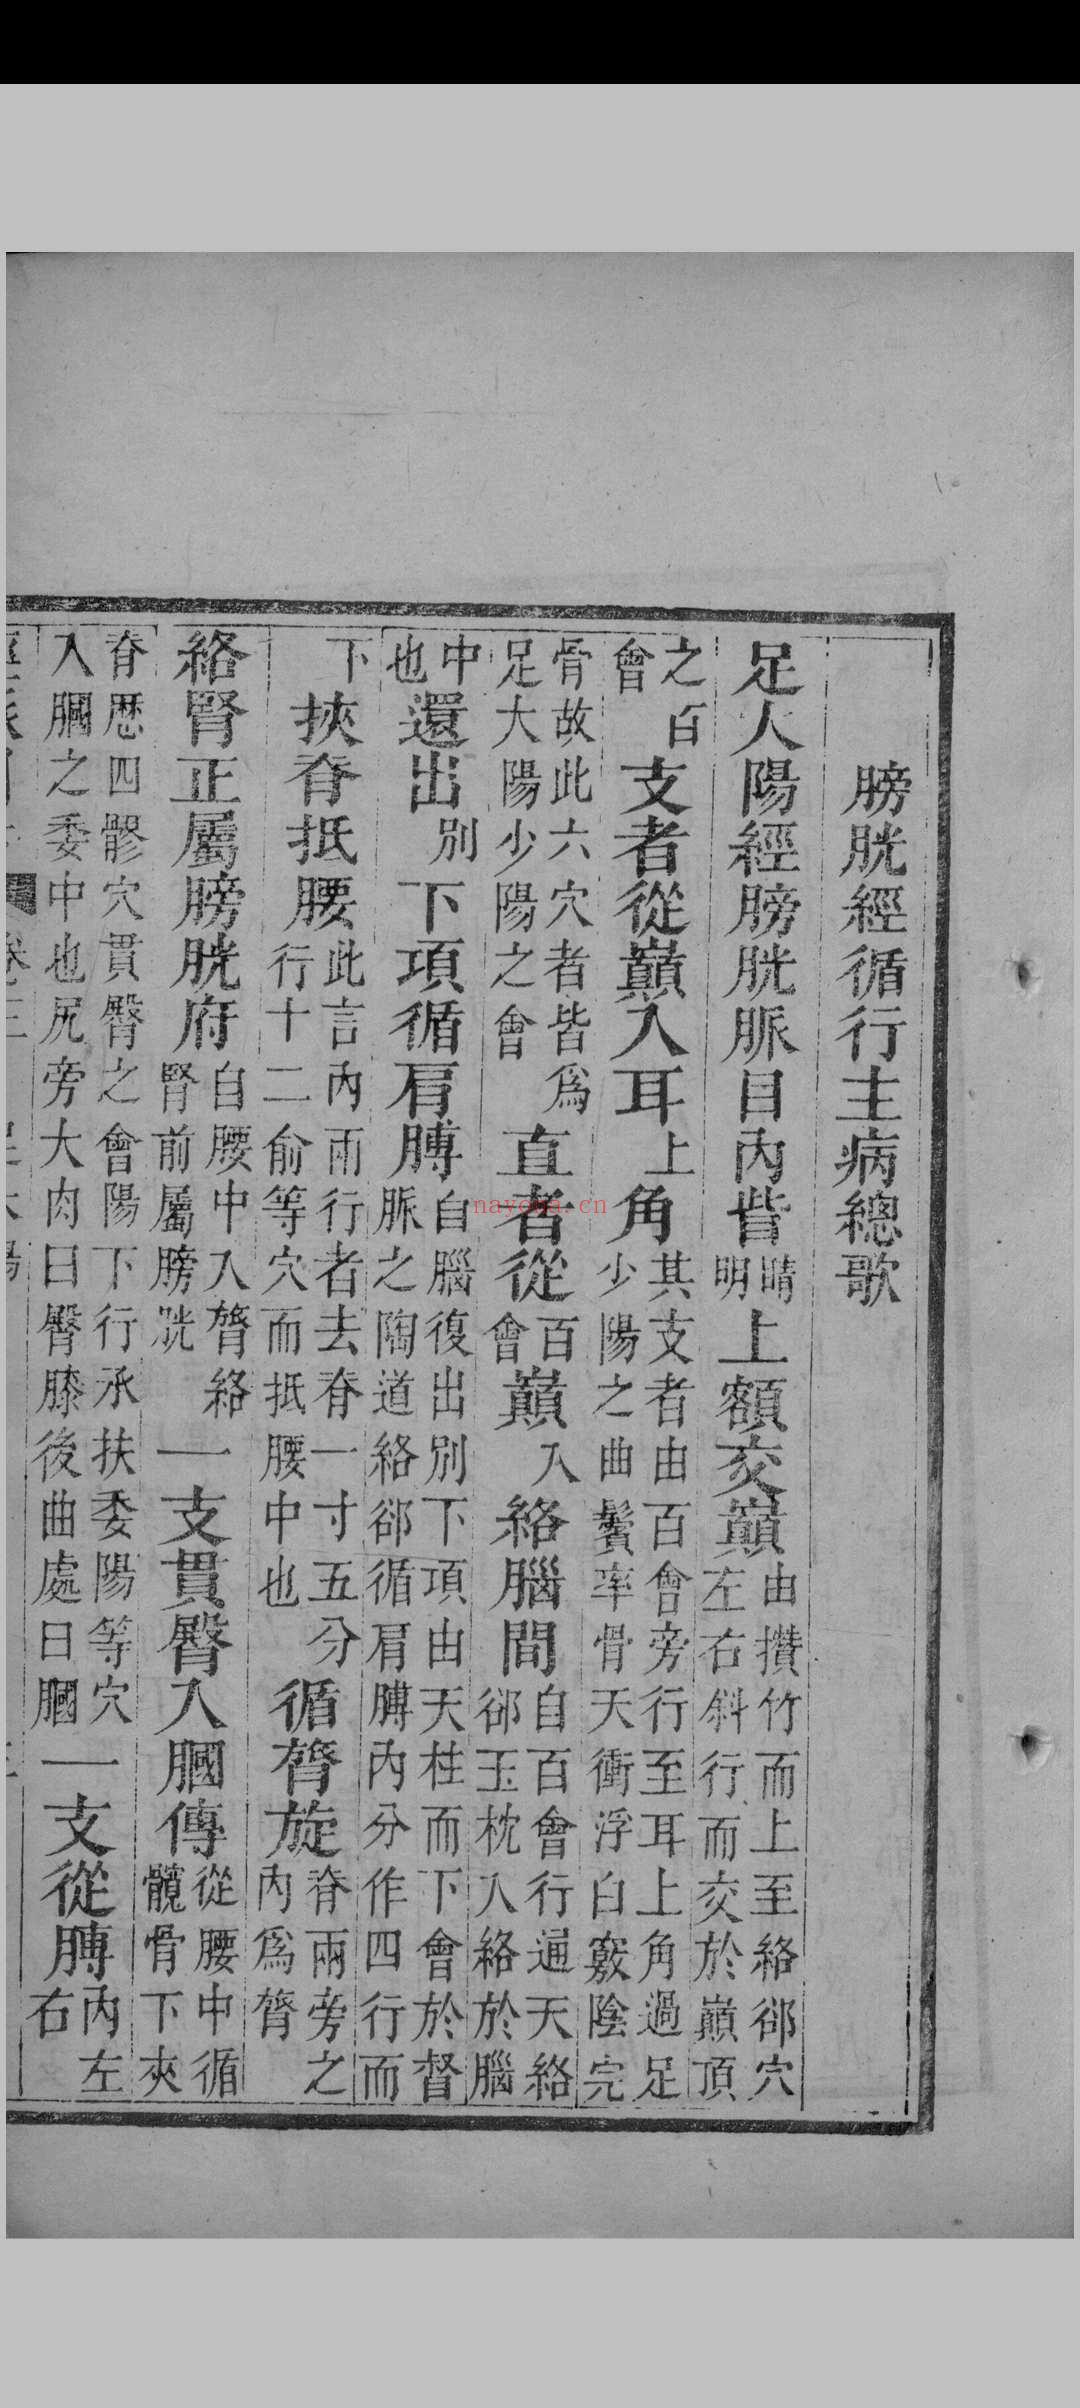 膀胱經循行主病總歌
足太陽經膀胱脈目內眥睛明上額交巔由攢竹而上至絡郤穴左右斜行而交於巔頂
之百會支者從巔入耳上角其支者由百會旁行至耳上角過足少陽之曲鬢率骨天衝浮白竅陰完
骨故此六穴者皆爲足大陽少陽之會直者從百會巔入絡腦間自百會行通天絡郤玉枕入絡於腦
中也還出別下項循肩膊自腦復出別下項由天柱而下會於督脈之陶道絡郤循肩膊內分作四行而
下挾脊抵腰此言內兩行者去脊一寸五分行十二俞等穴而抵腰中也循膂旋脊兩旁之內爲膂
絡腎正屬膀胱府自腰中入膂絡腎前屬膀胱一支貫臀入膕傳從腰中循髖骨下夾
脊歷四髎穴貫臀之會陽下行承扶委陽等穴入膕之委中也尻旁大肉曰臀膝後曲處曰膕一支從膊內左右
nayona.cn